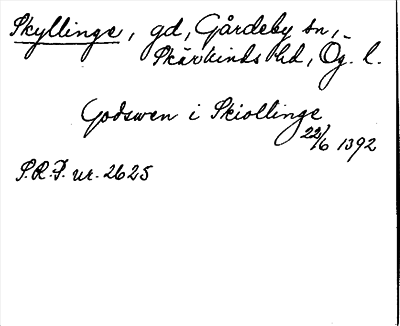 Skyllinge, gd, Gårdeby sn,
Skärkinds hd, Ög. l.
Godswen i Skiollinge
22/6 1392
S.R.P. nr. 2625